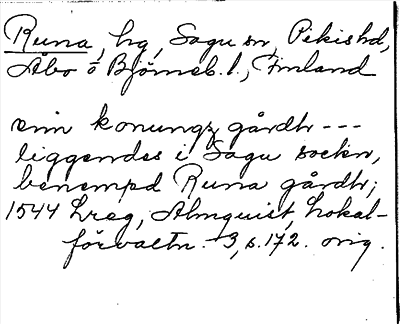 Runa, hg, Sagu sn, Pikishd,
Åbo o Björneb. l., Finland
min konungz gårdh ---
liggendes i Sagu sockn,
benempd Runa gårdh;
1544 hreg, Almquist, Lokal-
förvaltn. 3, s. 172. orig.